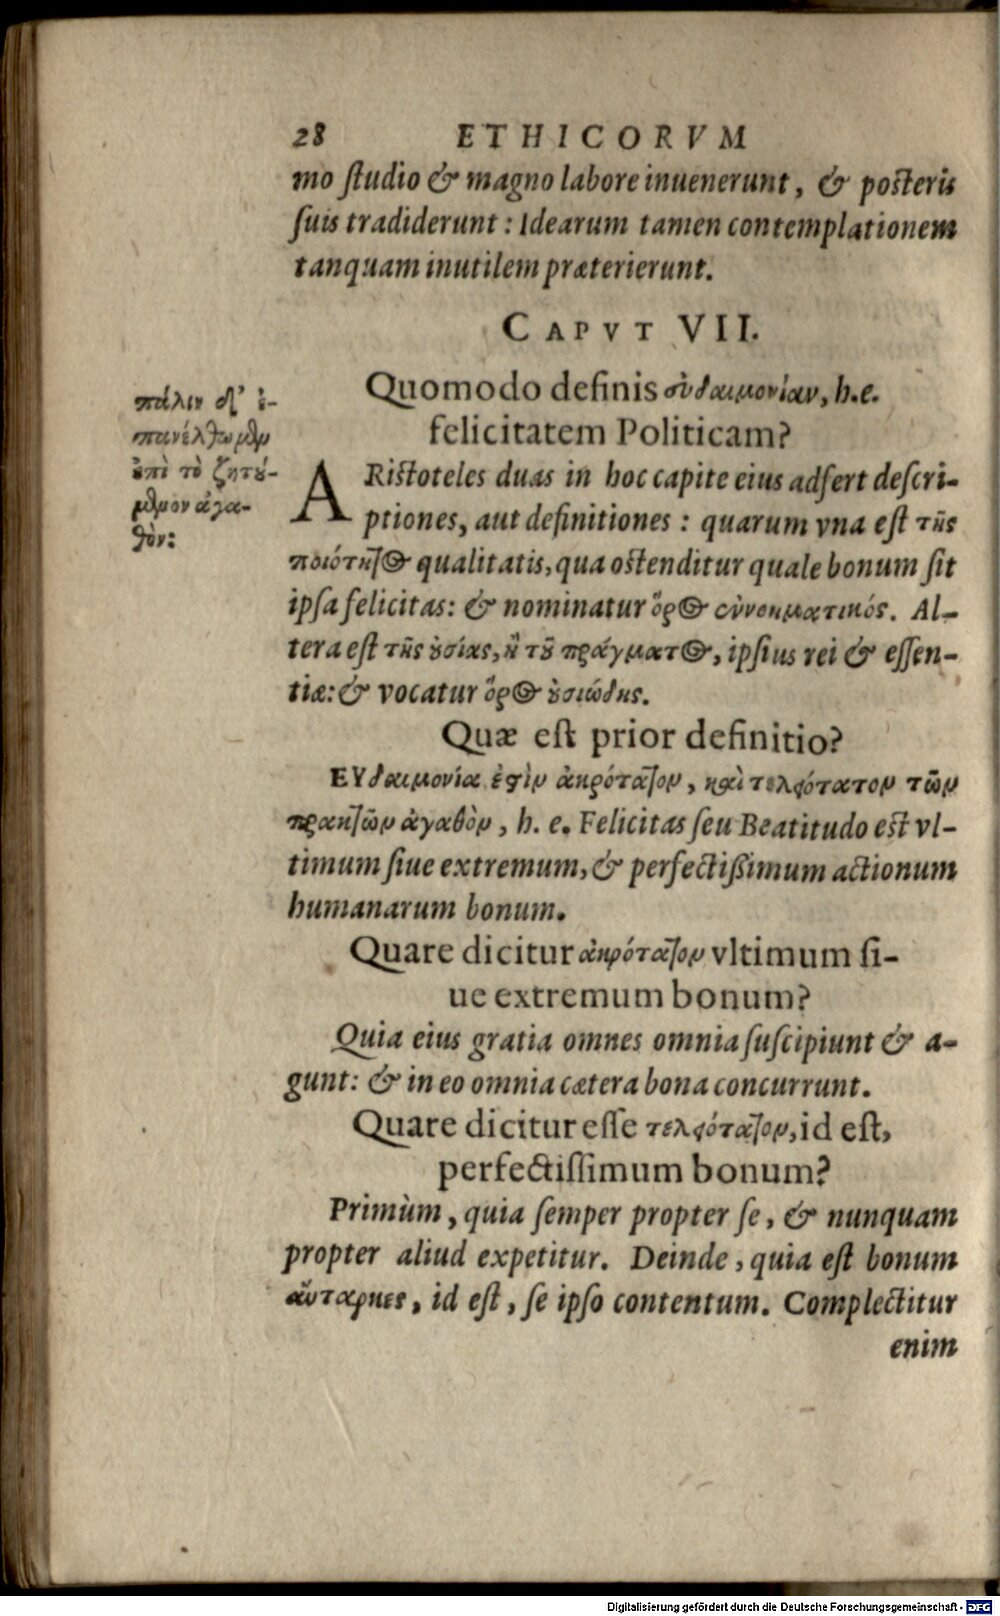 28 ETHICORVM
mo ſtudio & magno labore inuenerunt, & poſteris
ſuis tradiderunt: Idearum tamen contemplationem
tanquam inutilem præterierunt.
CAPVT VII.
πάλιν δ' ἐ-
πανέλθωμεν
ἐπὶ τὸ ζητού-
μενον ἀγα-
θὸν:
Quomodo definis εὐδαιμονίαν, h.e.
felicitatem Politicam?
ARiſtoteles duas in hoc capite eius adfert deſcri-
ptiones, aut definitiones: quarum vna eſt τῆς
ποιότητος qualitatis, qua oſtenditur quale bonum ſit
ipſa felicitas: & nominatur ὅρος ἐννοηματικός. Al-
tera eſt τῆς οὐσίας, ἢ τοῦ πράγματος, ipſius rei & eſſen-
tiæ: & vocatur ὅρος οὐσιώδης.
Quæ eſt prior definitio?
ΕΥδαιμονία ἐστὶν ἀκρότατον, καὶ τελειότατον τῶν
πρακτῶν ἀγαθὸν, h. e. Felicitas ſeu Beatitudo eſt vl-
timum ſiue extremum, & perfectißimum actionum
humanarum bonum.
Quare dicitur ἀκρότατον vltimum ſi-
ue extremum bonum?
Quia eius gratia omnes omnia ſuſcipiunt & a-
gunt: & in eo omnia cætera bona concurrunt.
Quare dicitur eſſe τελειότατον, id eſt,
perfectiſſimum bonum?
Primùm, quia ſemper propter ſe, & nunquam
propter aliud expetitur. Deinde, quia eſt bonum
αὔταρκες, id eſt, ſe ipſo contentum. Complectitur
enim
Digitalisierung gefördert durch die Deutsche Forschungsgemeinschaft - DFG